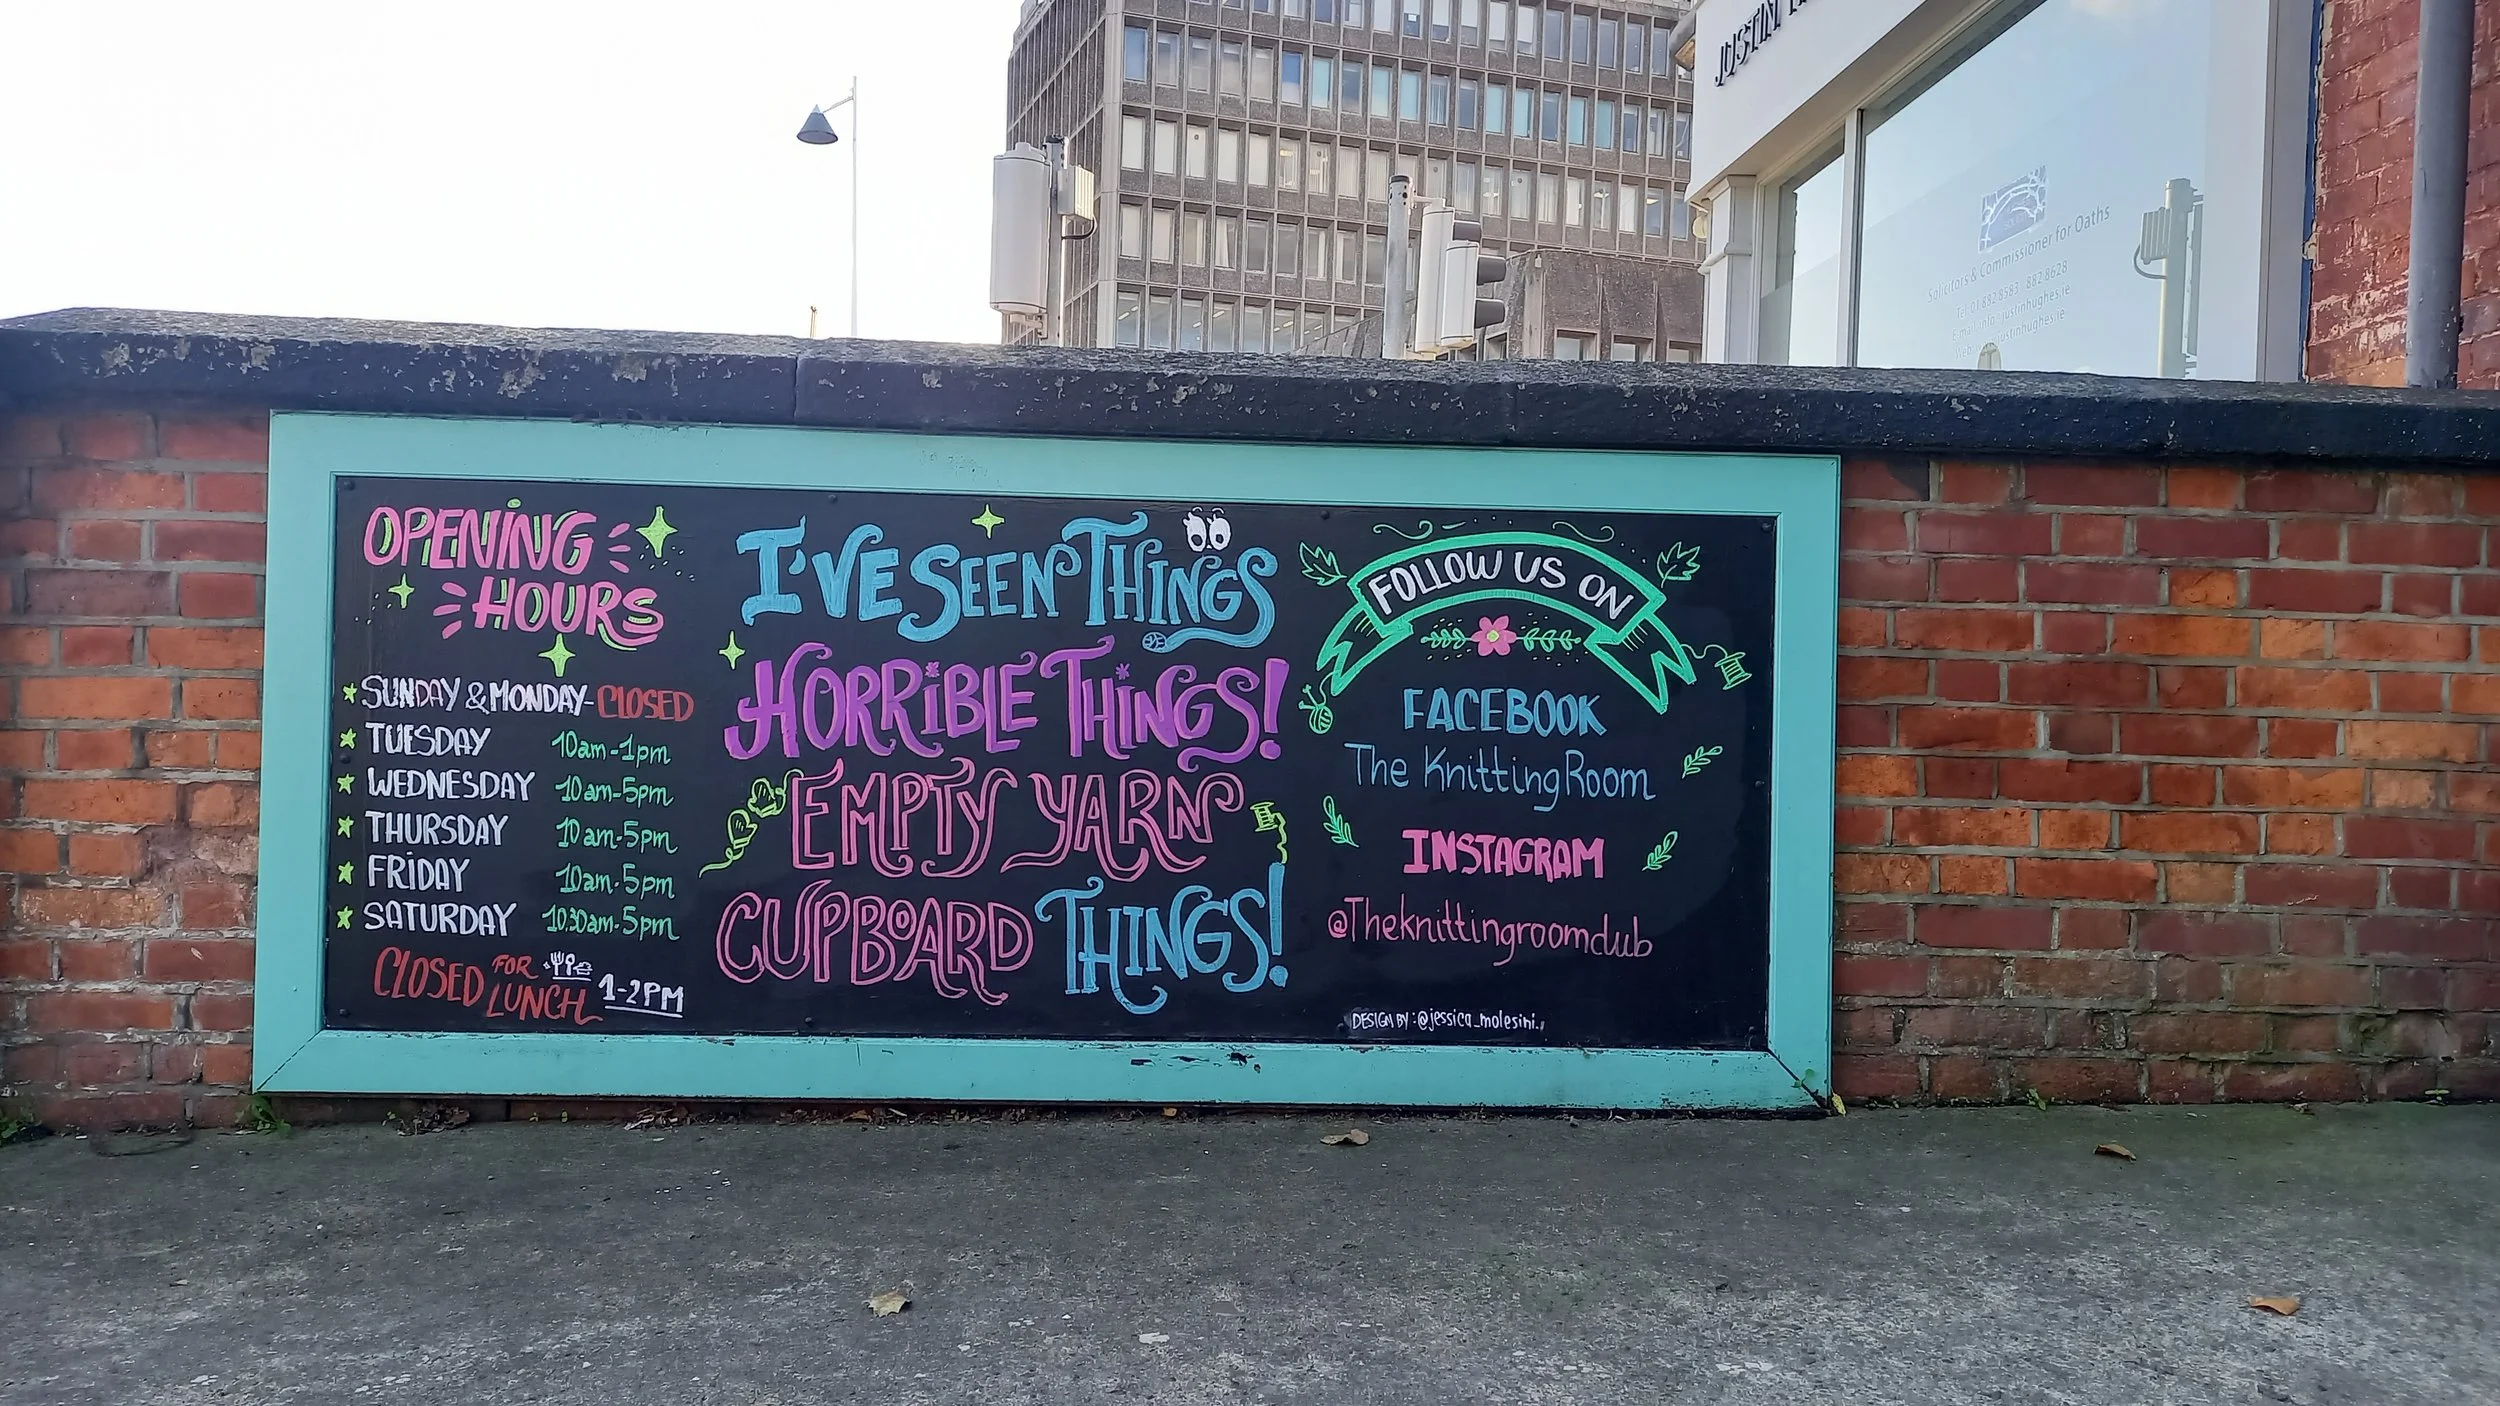 JUSTIN
Solicitors & Commissioner for Oaths
Tel: 01 882 8583 882 8628
E-mail: info@justinhughes.ie
Web: justinhughes.ie
OPENING
HOURS
SUNDAY & MONDAY- CLOSED
TUESDAY 10am-1pm
WEDNESDAY 10am-5pm
THURSDAY 10am-5pm
FRIDAY 10am-5pm
SATURDAY 10.30am-5pm
CLOSED FOR LUNCH 1-2PM
I'VE SEEN THINGS
HORRIBLE THINGS!
EMPTY YARN
CUPBOARD THINGS!
FOLLOW US ON
FACEBOOK
The Knitting Room
INSTAGRAM
@Theknittingroomdub
DESIGN BY: @jessica_molesini